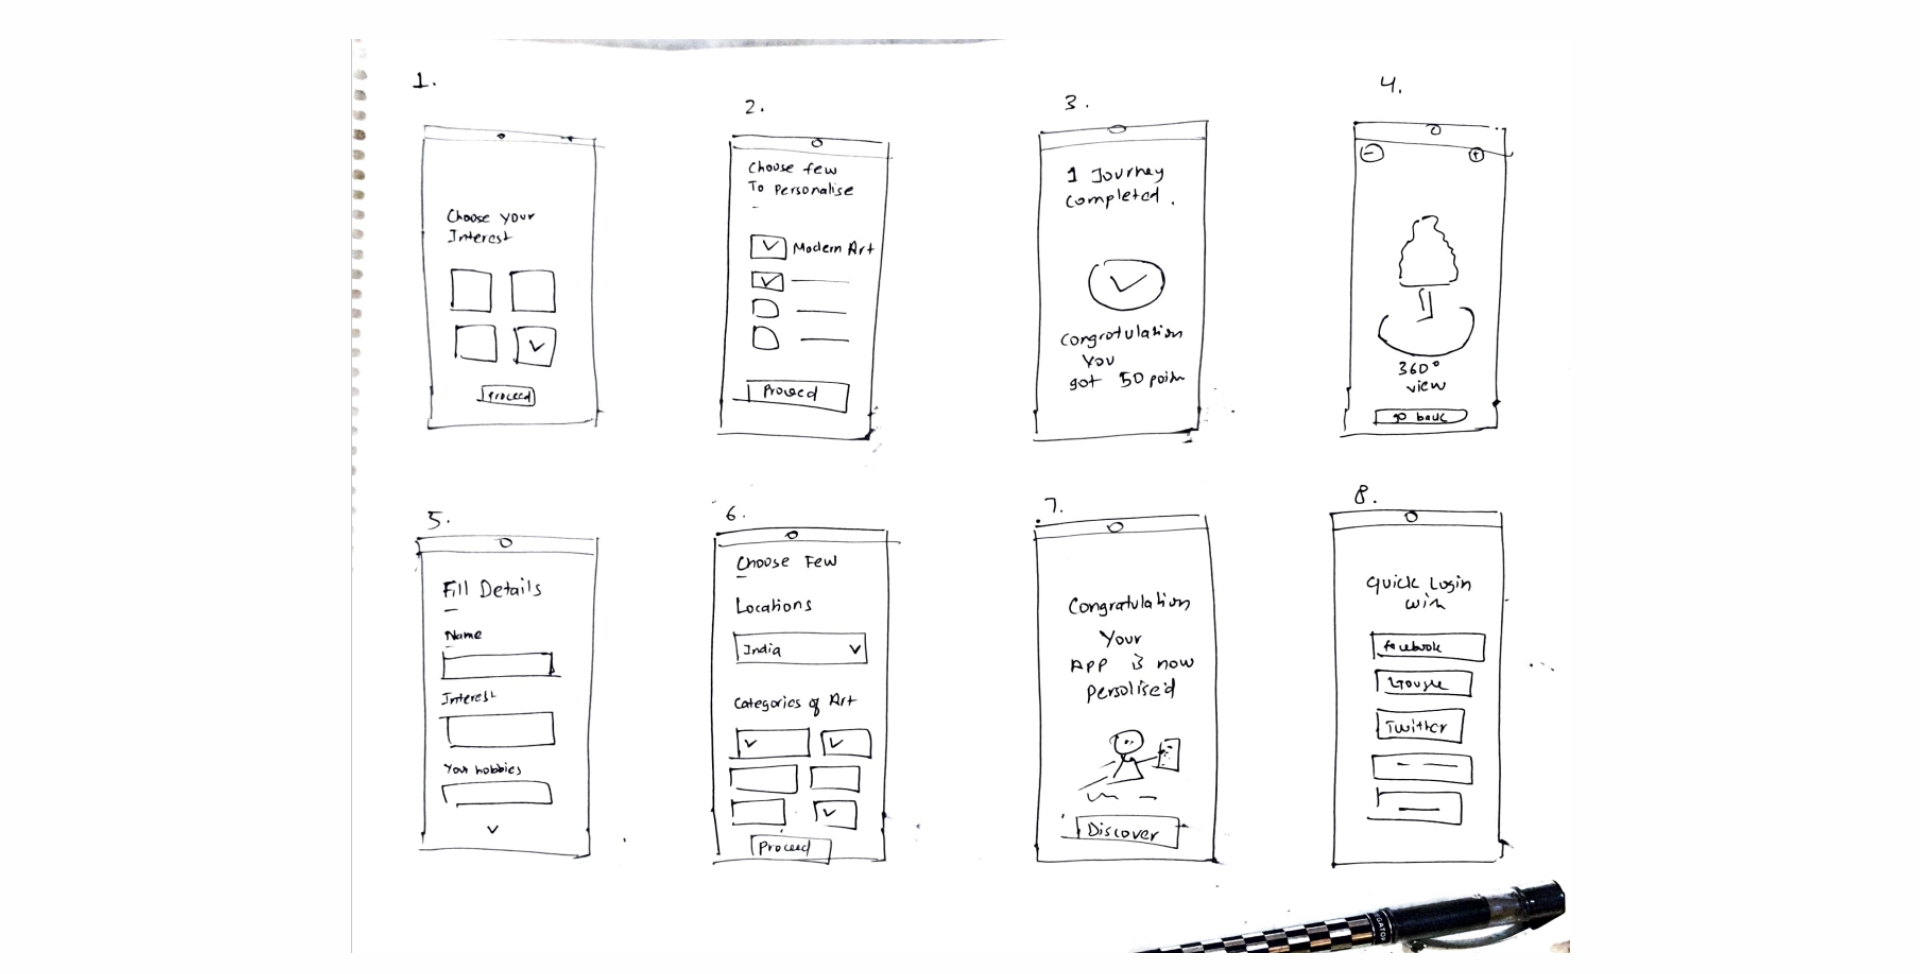 1.
Choose your
Interest
Proceed
2.
Choose few
To Personalise
Modern Art
Proceed
3.
1 Journey
completed.
Congratulation
You
got 50 points
4.
360°
view
go back
5.
Fill Details
Name
Interest
Your hobbies
6.
Choose Few
Locations
India
Categories of Art
Proceed
7.
Congratulation
Your
APP is now
Persolise'd
Discover
8.
Quick Login
with
facebook
Google
Twitter